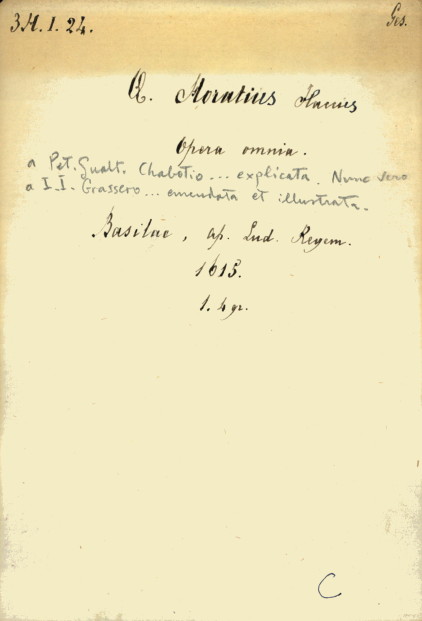 3.H.I.24.
Ges.
Q. Horatius Flaccus
Opera omnia.
a Pet. Gualt. Chabotio... explicata. Nunc vero
a I.I. Grassero... emendata et illustrata.
Basileae, ap. Lud. Regem.
1615.
1. 4 gr.
C